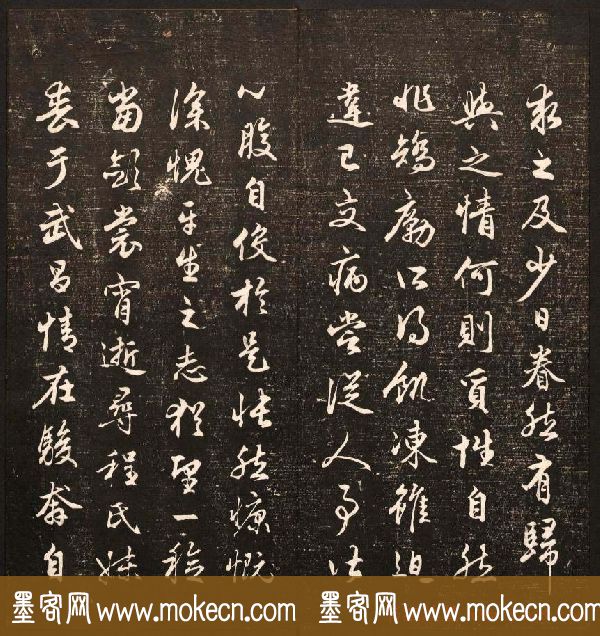 求之及少日眷然有歸
與之情何則質性自然
非矯勵所得飢凍雖迫
違己交病嘗從人事皆
口腹自役於是悵然慷慨
深愧平生之志猶望一稔
當斂裳宵逝尋程氏妹
喪于武昌情在駿奔自
墨客网 www.mokecn.com 墨客网 www.mokecn.com